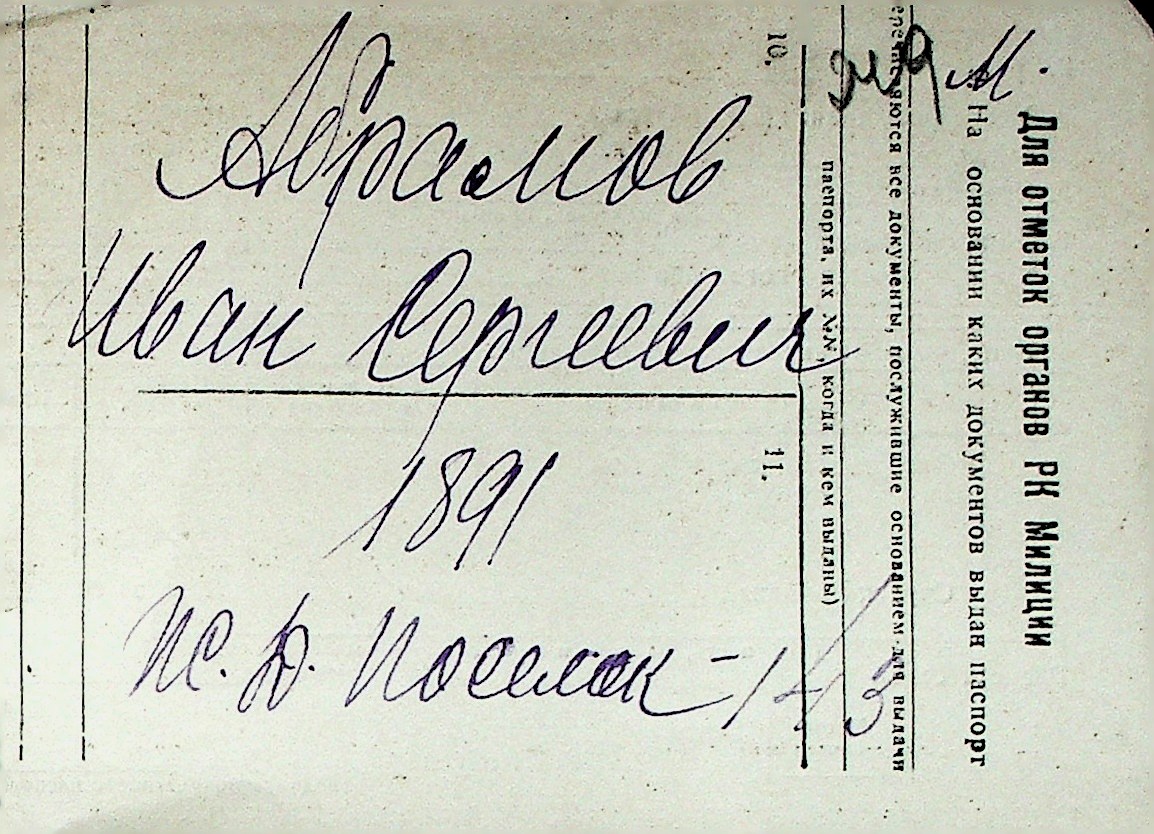 Абрамов
Иван Сергеевич
1891
Ж.Д. Поселок - 14/3
М.
Для отметок органов РК Милиции
На основании каких документов выдан паспорт
перечисляются все документы, послужившие основанием для выдачи
паспорта, их №№, когда и кем выданы)
10.
11.